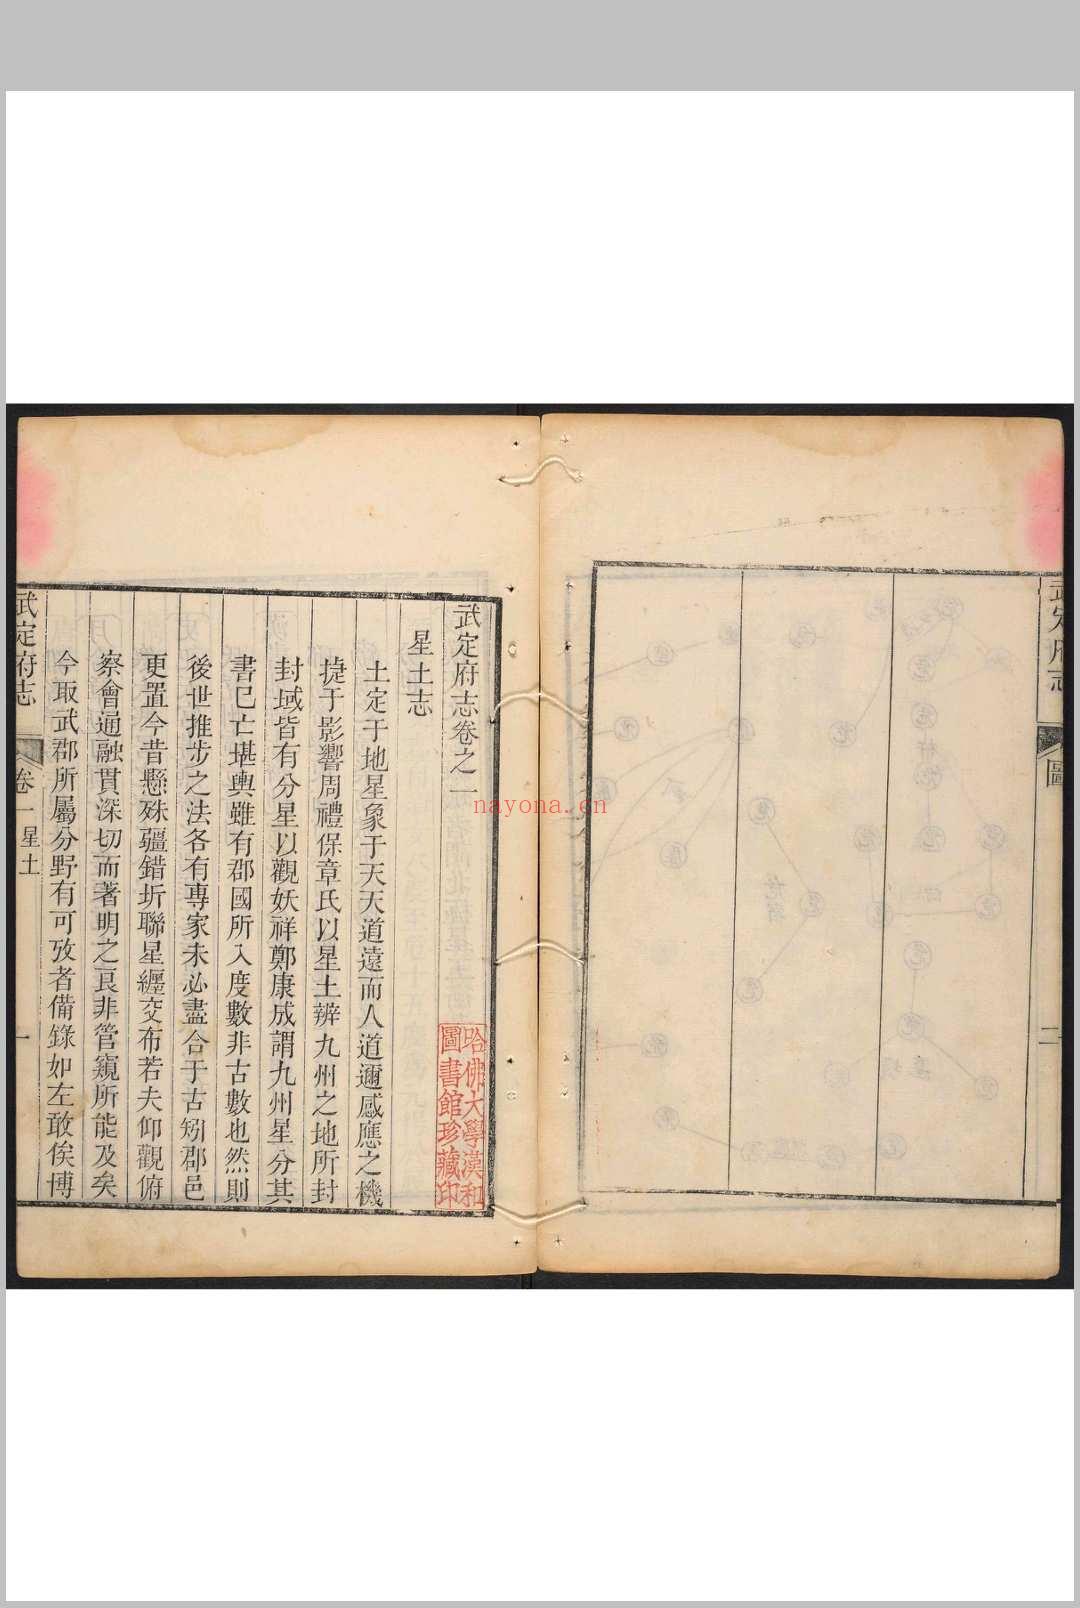 武定府志
圖
二
武定府志卷之一
星土志
土定于地星象于天天道遠而人道邇感應之機
捷于影響周禮保章氏以星土辨九州之地所封
封域皆有分星以觀妖祥鄭康成謂九州星分其
書巳亡堪輿雖有郡國所入度數非古數也然則
後世推步之法各有專家未必盡合于古矧郡邑
更置今昔懸殊疆錯圻聯星纏交布若夫仰觀俯
察會通融貫深切而著明之艮非管窺所能及矣
今取武郡所屬分野有可攷者備錄如左敢俟博
武定府志
卷一
星土
一
哈佛大學漢和
圖書館珍藏印
nayona.cn